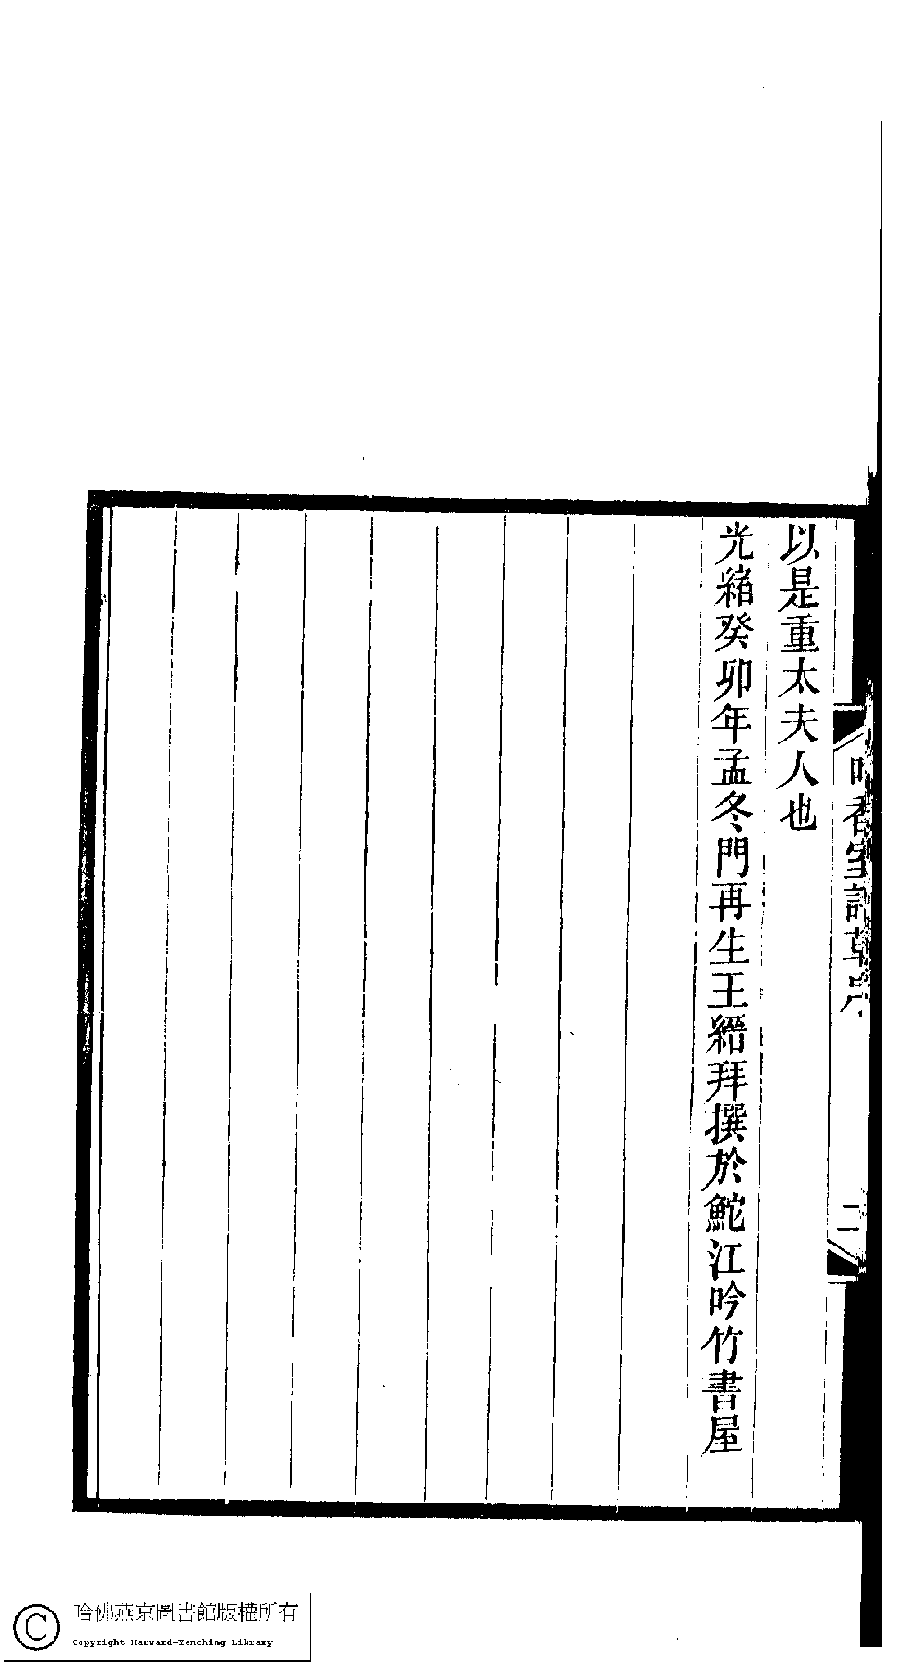 以是重太夫人也
光緒癸卯年孟冬門再生王縉拜撰於鮀江吟竹書屋
香室詩草序
二
哈佛燕京圖書館版權所有
Copyright Harvard-Yenching Library